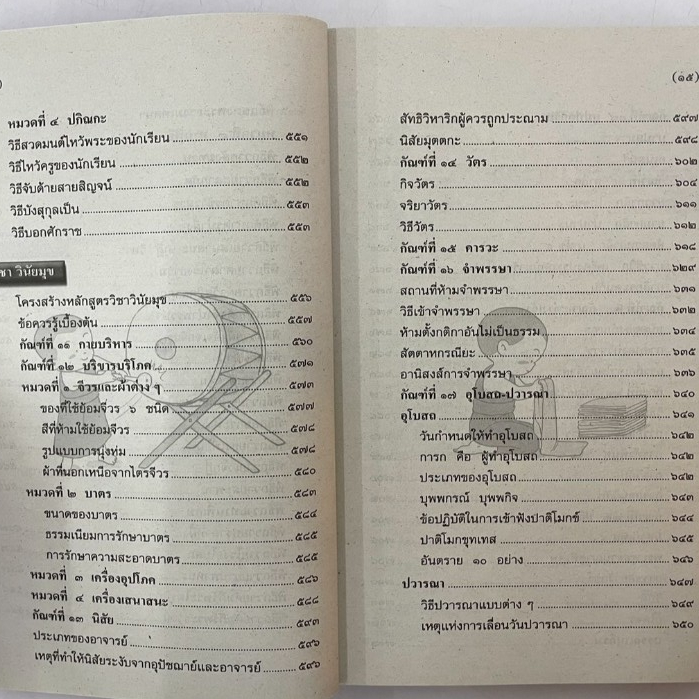 )
หมวดที่ ๔ ปกิณกะ
วิธีสวดมนต์ไหว้พระของนักเรียน ๕๕๑
วิธีไหว้ครูของนักเรียน ๕๕๒
วิธีจับด้ายสายสิญจน์ ๕๕๒
วิธีบังสุกุลเป็น ๕๕๓
วิธีบอกศักราช ๕๕๓
ชา วินัยมุข
โครงสร้างหลักสูตรวิชาวินัยมุข ๕๕๖
ข้อควรรู้เบื้องต้น ๕๕๗
กัณฑ์ที่ ๑๑ กายบริหาร ๕๖๐
กัณฑ์ที่ ๑๒ บริขารบริโภค ๕๗๑
หมวดที่ ๑ จีวรและผ้าต่าง ๆ ๕๗๓
ของที่ใช้ย้อมจีวร ๖ ชนิด ๕๗๗
สีที่ห้ามใช้ย้อมจีวร ๕๗๘
รูปแบบการนุ่งห่ม ๕๗๘
ผ้าที่นอกเหนือจากไตรจีวร ๕๘๐
หมวดที่ ๒ บาตร ๕๘๓
ขนาดของบาตร ๕๘๔
ธรรมเนียมการรักษาบาตร ๕๘๕
การรักษาความสะอาดบาตร ๕๘๕
หมวดที่ ๓ เครื่องอุปโภค ๕๘๖
หมวดที่ ๔ เครื่องเสนาสนะ ๕๘๘
กัณฑ์ที่ ๑๓ นิสัย ๕๙๓
ประเภทของอาจารย์ ๕๙๖
เหตุที่ทำให้นิสัยระงับจากอุปัชฌาย์และอาจารย์ ๕๙๖
(๑๕)
สัทธิวิหาริกผู้ควรถูกประณาม ๕๙๗
นิสัยมุตตกะ ๕๙๘
กัณฑ์ที่ ๑๔ วัตร ๖๐๒
กิจวัตร ๖๐๔
จริยาวัตร ๖๑๑
วิธีวัตร ๖๑๒
กัณฑ์ที่ ๑๕ คารวะ ๖๑๘
กัณฑ์ที่ ๑๖ จำพรรษา ๖๒๙
สถานที่ห้ามจำพรรษา ๖๓๑
วิธีเข้าจำพรรษา ๖๓๒
ห้ามตั้งกติกาอันไม่เป็นธรรม ๖๓๔
สัตตาหกรณียะ ๖๓๕
อานิสงส์การจำพรรษา ๖๓๖
กัณฑ์ที่ ๑๗ อุโบสถ-ปวารณา ๖๔๐
อุโบสถ ๖๔๑
วันกำหนดให้ทำอุโบสถ ๖๔๒
การก คือ ผู้ทำอุโบสถ ๖๔๒
ประเภทของอุโบสถ ๖๔๒
บุพพกรณ์ บุพพกิจ ๖๔๓
ข้อปฏิบัติในการเข้าฟังปาติโมกข์ ๖๔๔
ปาติโมกขุทเทส ๖๔๕
อันตราย ๑๐ อย่าง ๖๔๖
ปวารณา ๖๔๗
วิธีปวารณาแบบต่าง ๆ ๖๔๙
เหตุแห่งการเลื่อนวันปวารณา ๖๕๐